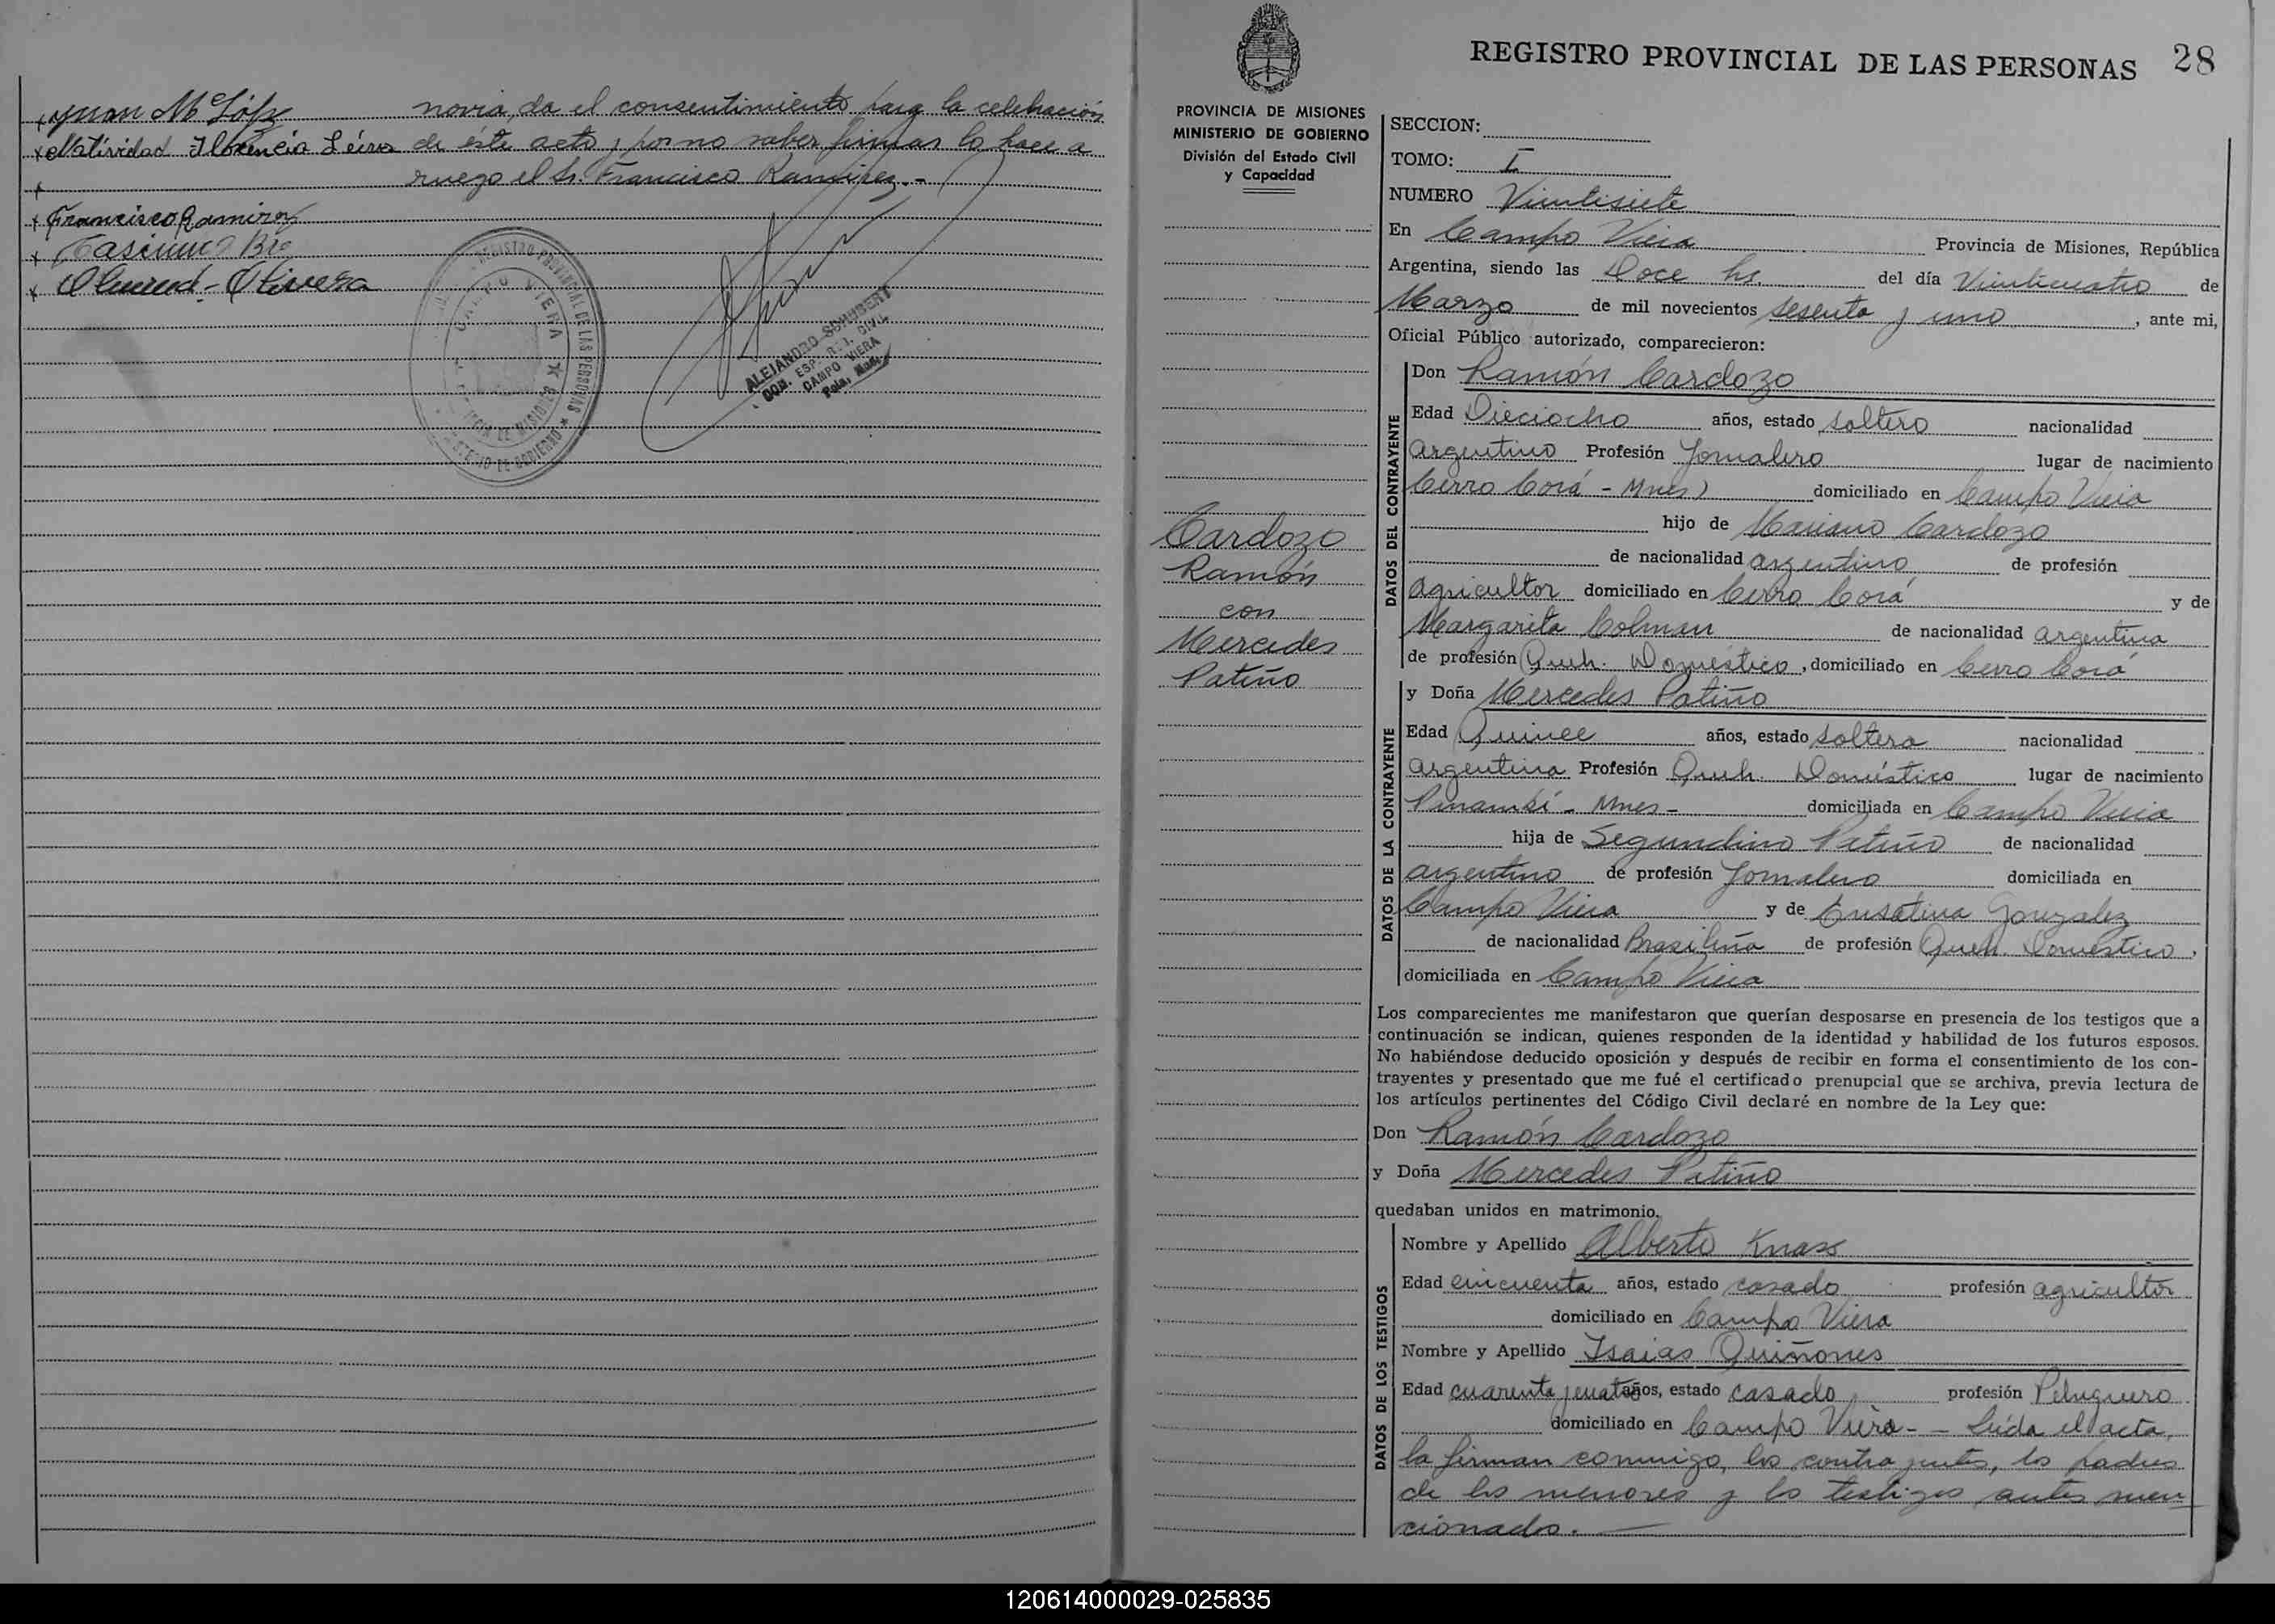 Juan M López
novia, da el consentimiento para la celebración
Natividad Florencia Leiva de éste acto y por no saber firmar lo hace a
ruego el Sr. Francisco Ramirez.-
Francisco Ramirez
Olivera
REGISTRO PROVINCIAL DE LAS PERSONAS
CAMPO VIERA
ALEJANDRO SCHUBERT
CAMPO VIERA
REGISTRO PROVINCIAL DE LAS PERSONAS 28
PROVINCIA DE MISIONES
MINISTERIO DE GOBIERNO
División del Estado Civil
y Capacidad
Cardozo
Ramón
con
Mercedes
Patiño
SECCION:
TOMO: I
NUMERO Vientisiete
En Campo Viera Provincia de Misiones, República
Argentina, siendo las Doce hs. del día Vienticuatro de
Marzo de mil novecientos sesenta y uno, ante mi,
Oficial Público autorizado, comparecieron:
DATOS DEL CONTRAYENTE
Don Ramón Cardozo
Edad Dieciocho años, estado soltero nacionalidad
argentino Profesión Jornalero lugar de nacimiento
Cerro Corá - Mnes) domiciliado en Campo Viera
hijo de Mariano Cardozo
de nacionalidad argentino de profesión
agricultor domiciliado en Cerro Corá y de
Margarita Colman de nacionalidad argentina
de profesión Queh. Doméstico, domiciliado en Cerro Corá
DATOS DE LA CONTRAYENTE
y Doña Mercedes Patiño
Edad Quince años, estado soltera nacionalidad
argentina Profesión Queh. Doméstico lugar de nacimiento
Panambí - Mnes - domiciliada en Campo Viera
hija de Segundino Patiño de nacionalidad
argentino de profesión Jornalero domiciliada en
Campo Viera y de Gonzalez
de nacionalidad Brasileña de profesión Queh. Doméstico,
domiciliada en Campo Viera
Los comparecientes me manifestaron que querían desposarse en presencia de los testigos que a
continuación se indican, quienes responden de la identidad y habilidad de los futuros esposos.
No habiéndose deducido oposición y después de recibir en forma el consentimiento de los con-
trayentes y presentado que me fué el certificado prenupcial que se archiva, previa lectura de
los artículos pertinentes del Código Civil declaré en nombre de la Ley que:
Don Ramón Cardozo
y Doña Mercedes Patiño
quedaban unidos en matrimonio.
DATOS DE LOS TESTIGOS
Nombre y Apellido Alberto Knass
Edad cincuenta años, estado casado profesión agricultor
domiciliado en Campo Viera
Nombre y Apellido Isaias Quiñones
Edad cuarenta y cuatro años, estado casado profesión Peluquero
domiciliado en Campo Viera - - Leída el acta,
la firman conmigo, los contrayentes, los padres
de los menores y los testigos antes men
cionados.
120614000029-025835